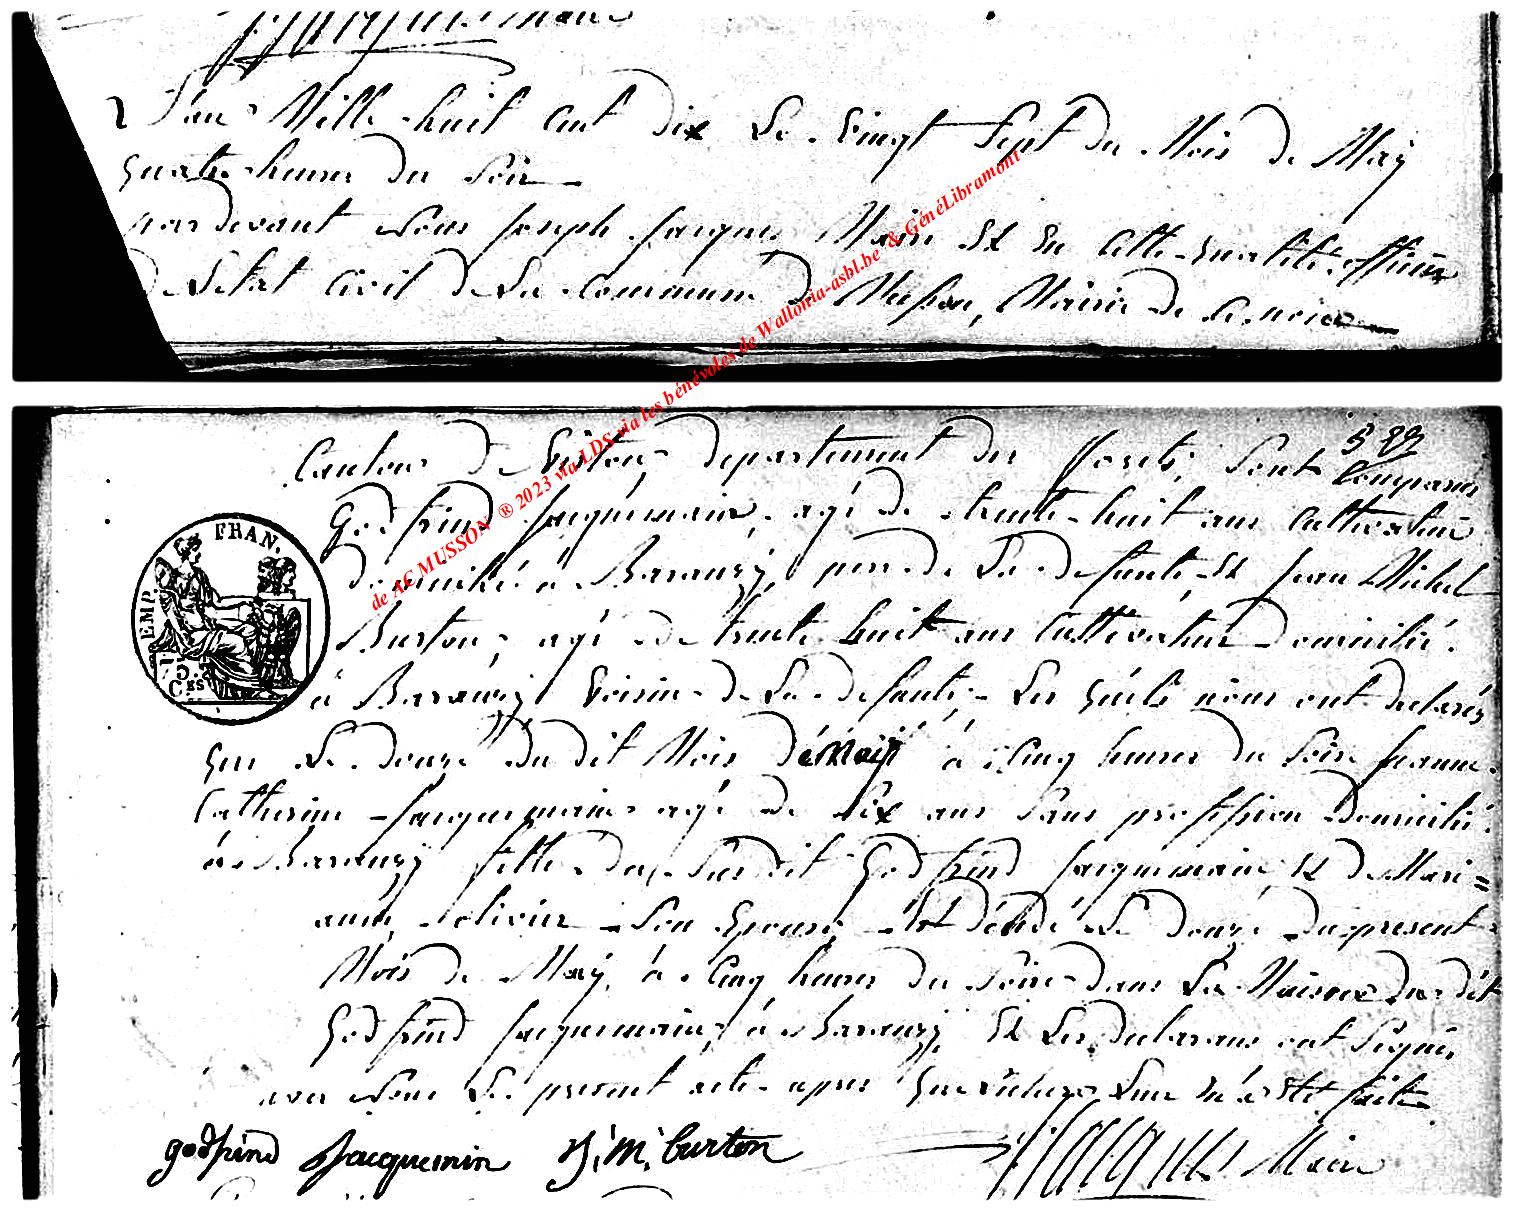 L'an Mille huit cent dix Le vingt Sept du Mois de Maÿ
quatre heures du Soir
pardevant Nous Joseph Jacques Maire Et En Cette qualité officier
de L'etat Civil de La Commune de Musson, Mairie de
Canton de Virton, departement des forets, Sont Comparus
Godfrind Jacquemain, agé de trente huit ans Cultivateur
domicilié à Baranzÿ, pere de La defunte Et Jean Michel
Burton, agé de trente huit ans Cultivateur Domicilié
à Baranzÿ Voisin de La defunte, Les quels nous ont declarés
que Le douze du dit Mois dé Maÿ à Cinq heures du Soir Jeanne
Catherine Jacquemain agé de Six ans Sans proffession Domicilié
à Baranzÿ fille du Sus dit Godfrind Jacquemain Et de Mari=
anne olivier Son Epouse, Est décédé Le douze du present
Mois de Maÿ, à Cinq heures du Soir dans La Maison du dit
Godfrind Jacquemain, à Baranzÿ, Et Les declarans ont Signés
avec Nous Le present acte apres que Lecture Leur En a Eté faite
godfrind Jacquemin J. M. burton Jacques Maire
EMP. FRAN.
75. Ces
de AC MUSSON ® 2023 via LDS via les bénévoles de Wallonia-asbl.be & GénéLibramont